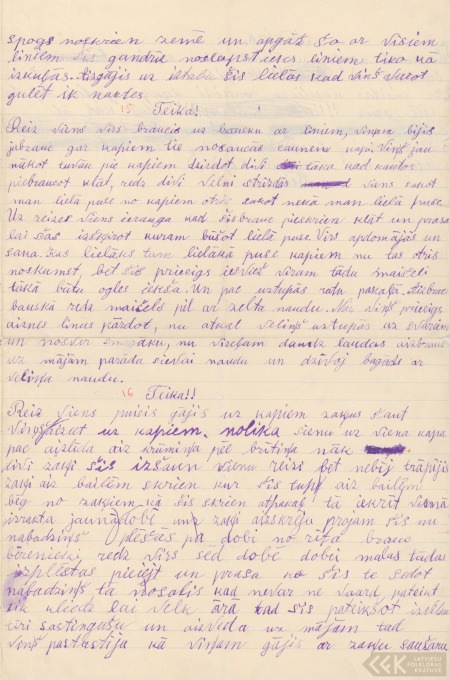 spogs noskrien zemē un apgāž šo ar visiem
liniem šis gandrīz noslāpst zem liniem tiko kā
izkuļas. Aizgājis uz istabu šis lielās kad viņš ākot
gulēt ik naktes
15 Teika!
Reiz viens vīrs braucis uz bausku ar liniem, viņam bijis
jābrauc gar kapiem tie nosaucās kapi. Viņš jau
nākot tuvāk pie kapiem dzirdot divi tāka kad kaujas
piebraucot klāt, redz divi velni strīdās viens sakot
man lielā puse no kapiem otrs sakot nekā man lielā puse.
Uz reizes viens ierauga kad šis brauc pieskrien klāt un prasa
lai šas izšķirot kuram būšot lielā puse. Vīrs apdomājās un
saka. Kas lielāks tam lielākā puse kapiem nu tas otris
noskumst, bet šis priecīgs iesviež vīram tādu maišeli
tākā būtu ogles iekšā. Un pac uztupās ratu pakaļā. Aizbrauc
bauskā redz maišels pil ar zelta naudu. Nu, viņš priecīgs
aiznes linus pārdot, nu atkal velinš uztupās uz svāriem
un nosver smagāku, nu vīreļam daudz naudas aizbrauc
uz mājām parāda sievai naudu un dzīvoj bagāts ar
veliņa naudu.
16 Teika!!
Reiz viens puisis gājis uz kapiem zaķus šaut
Viņš aizzat uz kapiem. nolika sienu uz viena kapa
pac aizlīda aiz krūmiņa pēc brītiņa nāk
divi zaķi šis izšaun vienu reizi bet nebij trāpījis
zaķi aiz bailēm skrien kur šis tup aiz bailēm
bēg no zaķiem kā šis skrien atpakaļ tā iekrīt vienā
izraktā jaunā dobē un zaķi aizskrēja projām šis nu
nabadziņš plēšās pa dobi no rīta brauc
bērenieki, redz vīrs sēd dobē dobei malas tādas
izplēstas pieiet un prasa ko šis te sēdot
nabadziņš tā nosalis kad nevar ne vaard pateikt
tik kliedz lai velk ārā tad šis pateikšot izvelk
ārā sastingušu un aizveda uz mājām tad
viņš pastāstīja kā viņam gājis ar zaķu šaušanu
LATVIEŠU
FOLKLORAS
KRĀTUVE